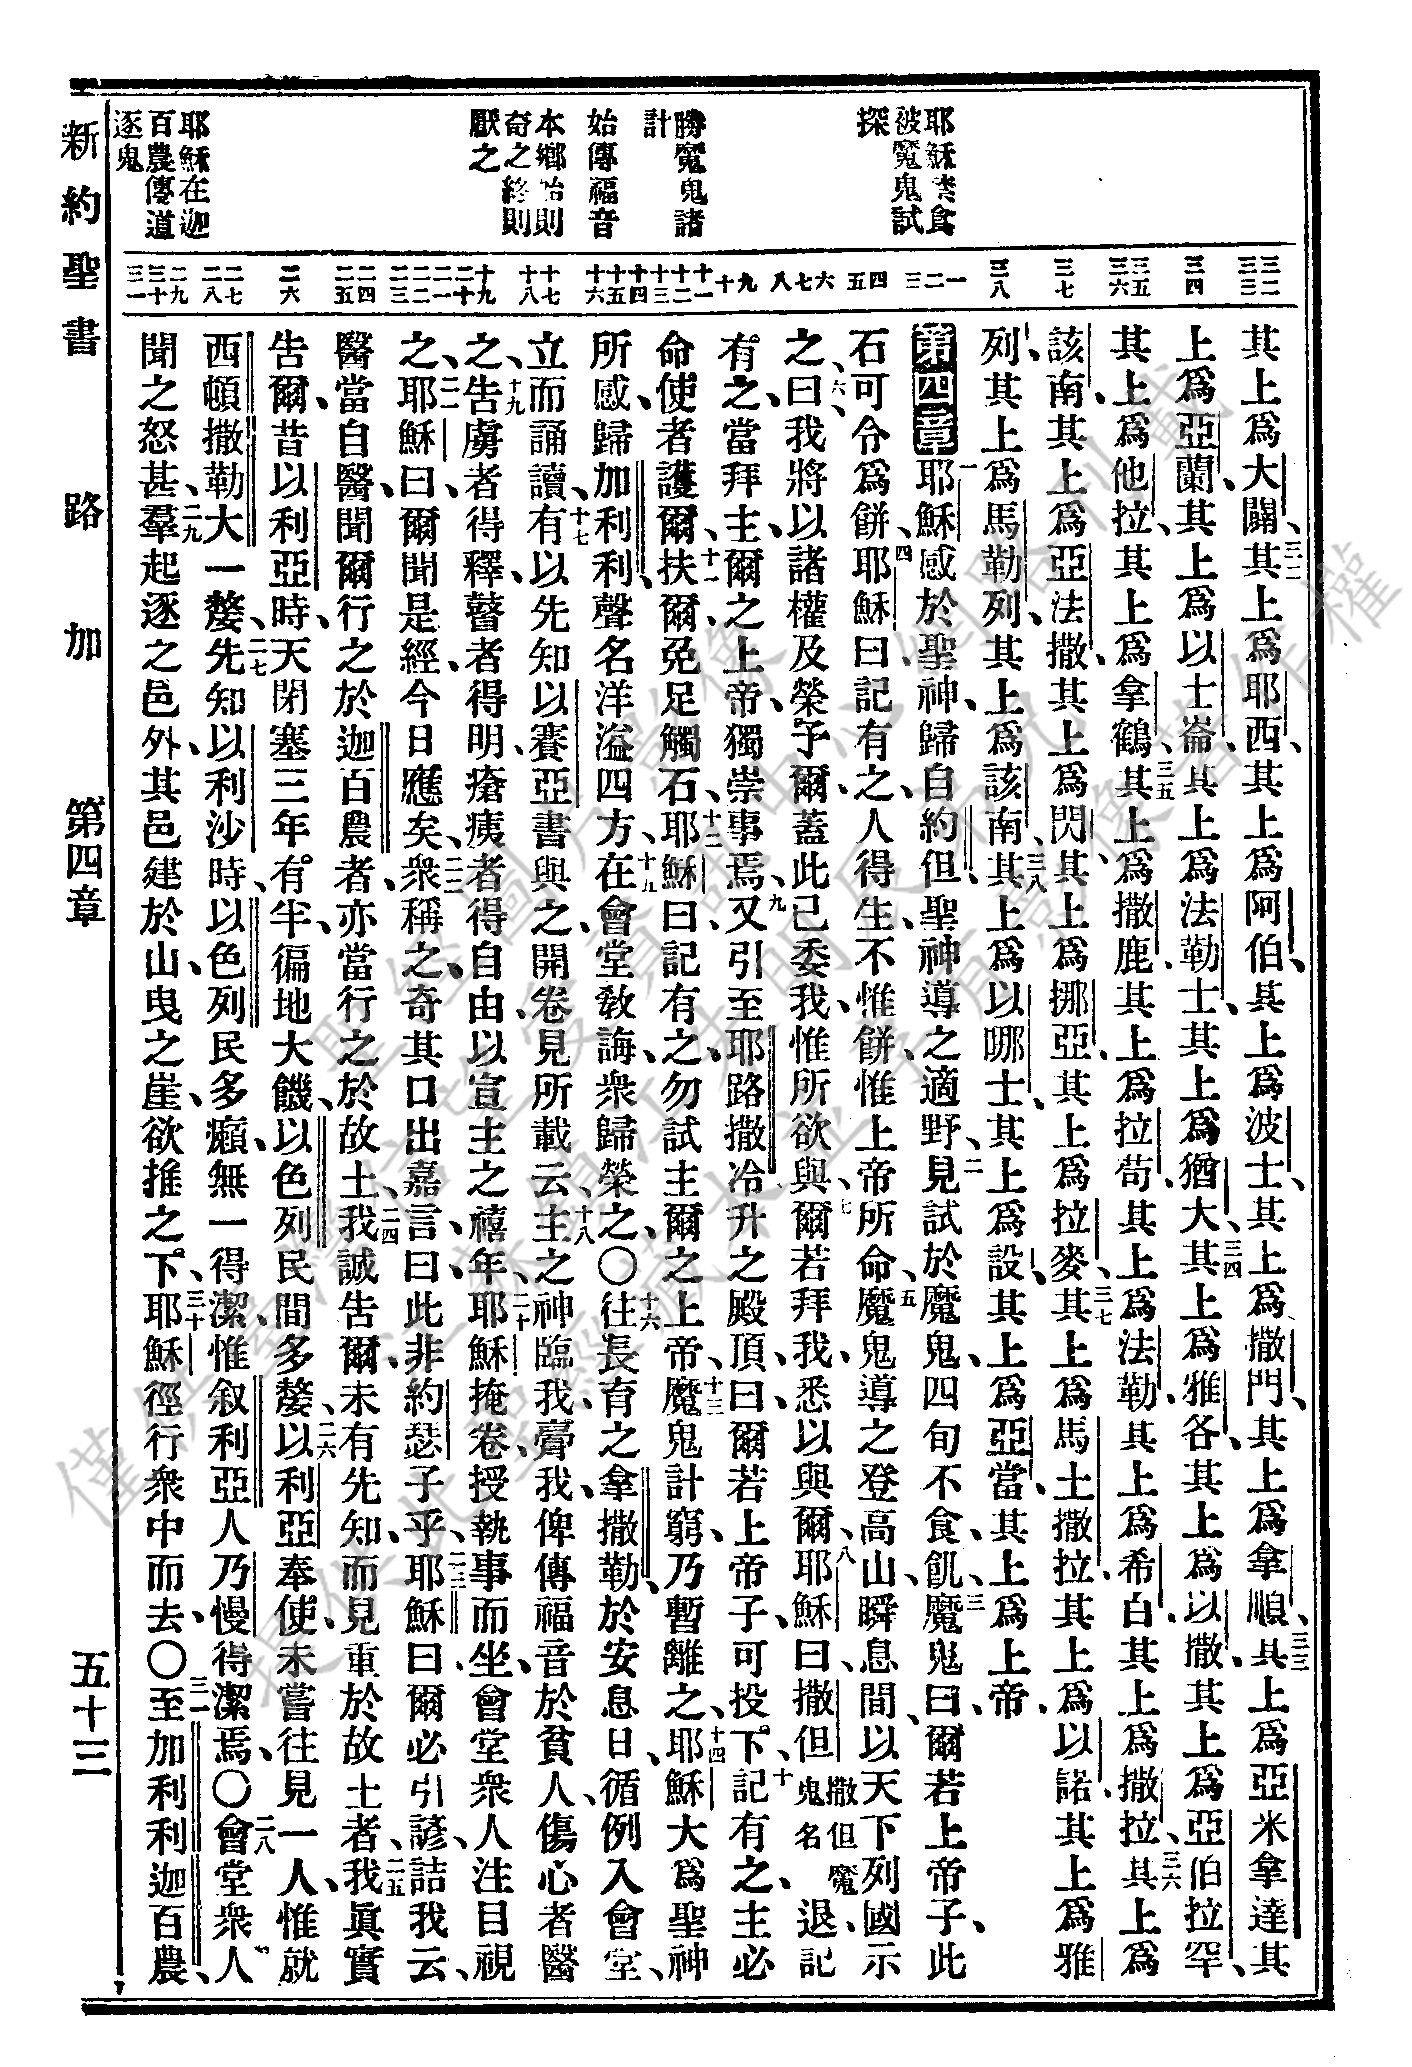 耶穌禁食
被魔鬼試
探
勝魔鬼諸
計
始傳福音
本鄉始則
奇之終則
厭之
耶穌在迦
百農傳道
逐鬼
三二 三三
三四
三五 三六
三七
三八
一 二 三
四 五
六 七 八
九 十
十一 十二 十三
十四 十五 十六
十七 十八
十九 二十
二一 二二 二三
二四 二五
二六
二七 二八
二九 三十 三一
其上爲大闢、三二其上爲耶西、其上爲阿伯、其上爲波士、其上爲撒門、其上爲拿順、三三其上爲亞米拿達其
上爲亞蘭、其上爲以士崙、其上爲法勒士、其上爲猶大、三四其上爲雅各、其上爲以撒、其上爲亞伯拉罕、
其上爲他拉、其上爲拿鶴、三五其上爲撒鹿、其上爲拉苟、其上爲法勒、其上爲希白、其上爲撒拉、三六其上爲
該南、其上爲亞法撒、其上爲閃、其上爲挪亞、其上爲拉麥、三七其上爲馬土撒拉、其上爲以諾、其上爲雅
列、其上爲馬勒列、其上爲該南、三八其上爲以哪士、其上爲設、其上爲亞當、其上爲上帝、
第四章 一耶穌感於聖神、歸自約但、聖神導之適野、二見試於魔鬼、四旬不食、飢、三魔鬼曰、爾若上帝子、此
石可令爲餅、四耶穌曰、記有之、人得生、不惟餅、惟上帝所命、五魔鬼導之登高山、瞬息間、以天下列國示
之、六曰、我將以諸權及榮予爾、蓋此已委我、惟所欲與、七爾若拜我、悉以與爾、八耶穌曰、撒但撒但魔鬼名退、記
有之、當拜主爾之上帝、獨崇事焉、九又引至耶路撒冷、升之殿頂、曰、爾若上帝子、可投下、十記有之、主必
命使者護爾、十一扶爾、免足觸石、十二耶穌曰、記有之、勿試主爾之上帝、十三魔鬼計窮、乃暫離之、十四耶穌大爲聖神
所感、歸加利利、聲名洋溢四方、十五在會堂敎誨、衆歸榮之、〇十六往長育之拿撒勒、於安息日、循例入會堂、
立而誦讀、十七有以先知以賽亞書與之、開卷、見所載云、十八主之神臨我、膏我、俾傳福音於貧人、傷心者醫
之、十九告虜者得釋、瞽者得明、瘡痍者得自由、以宣主之禧年、二十耶穌掩卷、授執事而坐、會堂衆人注目視
之、二一耶穌曰、爾聞是經、今日應矣、二二衆稱之、奇其口出嘉言、曰、此非約瑟子乎、二三耶穌曰、爾必引諺詰我云、
醫當自醫、聞爾行之於迦百農者、亦當行之於故土、二四我誠告爾、未有先知、而見重於故土者、二五我眞實
告爾、昔以利亞時、天閉塞三年有半、徧地大饑、以色列民間多嫠、二六以利亞奉使、未嘗往見一人、惟就
西頓撒勒大一嫠、二七先知以利沙時、以色列民多癩、無一得潔、惟叙利亞人乃慢得潔焉、〇二八會堂衆人
聞之怒甚、二九羣起逐之邑外、其邑建於山、曳之崖、欲推之下、三十耶穌徑行衆中而去、〇三一至加利利迦百農、
新約聖書 路加 第四章 五十三